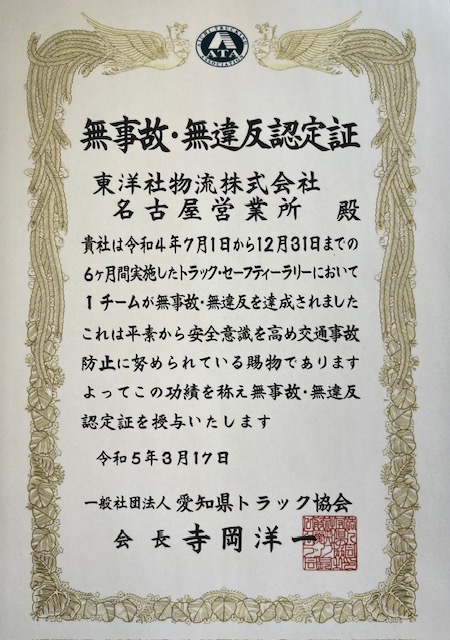 AICHI TRUCKING
ATA
ASSOCIATION
無事故・無違反認定証
東洋社物流株式会社
名古屋営業所 殿
貴社は令和4年7月1日から12月31日までの
6ヶ月間実施したトラック・セーフティーラリーにおいて
1チームが無事故・無違反を達成されました
これは平素から安全意識を高め交通事故
防止に努められている賜物であります
よってこの功績を称え無事故・無違反
認定証を授与いたします
令和5年3月17日
一般社団法人 愛知県トラック協会
会長 寺岡洋一